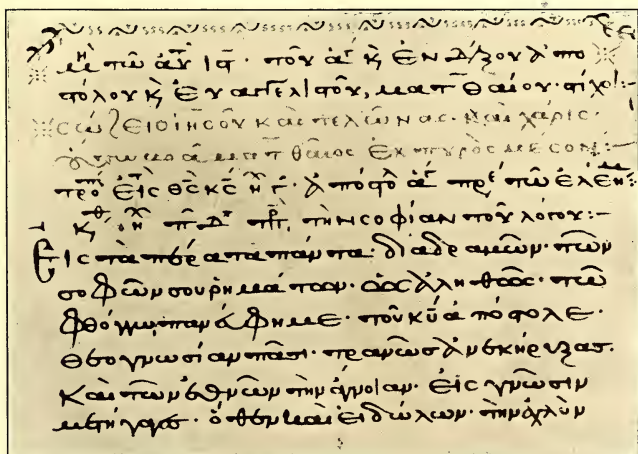 τῶ αὐτ ιϛ· τοῦ ἁγ κ ἐνδόξου ἀπο
στόλου κ εὐαγγελιστοῦ, ματθαίου· στίχοι:-
Σώζει ὁ ἰησοῦς καὶ τελώνας· καὶ χάρις·
ματθαῖος ἐκ πυρὸς μέσον:
εἰς θς κς ἦχ γ· ἀπόστολ ἅγ πρέ τῶ ἐλεημ:
τὴν σοφίαν τοῦ λόγου:-
Εἰς τὰ πέρατα πάντα· διαδραμὼν· τῶν
σοφῶν σου ῥημάτων· ὡς ἀληθῶς· τῶ
φθόγγω πανεύφημε· τοῦ κυ ἀπόστολε·
Θεογνωσίαν πᾶσι· τρανῶς ἀνεκήρυξας.
Καὶ τῶν ἐθνῶν τὴν ἄγνοιαν· εἰς γνῶσιν
μετήγαγες· ὅθεν καὶ εἰδώλων· τὴν ἀχλὺν